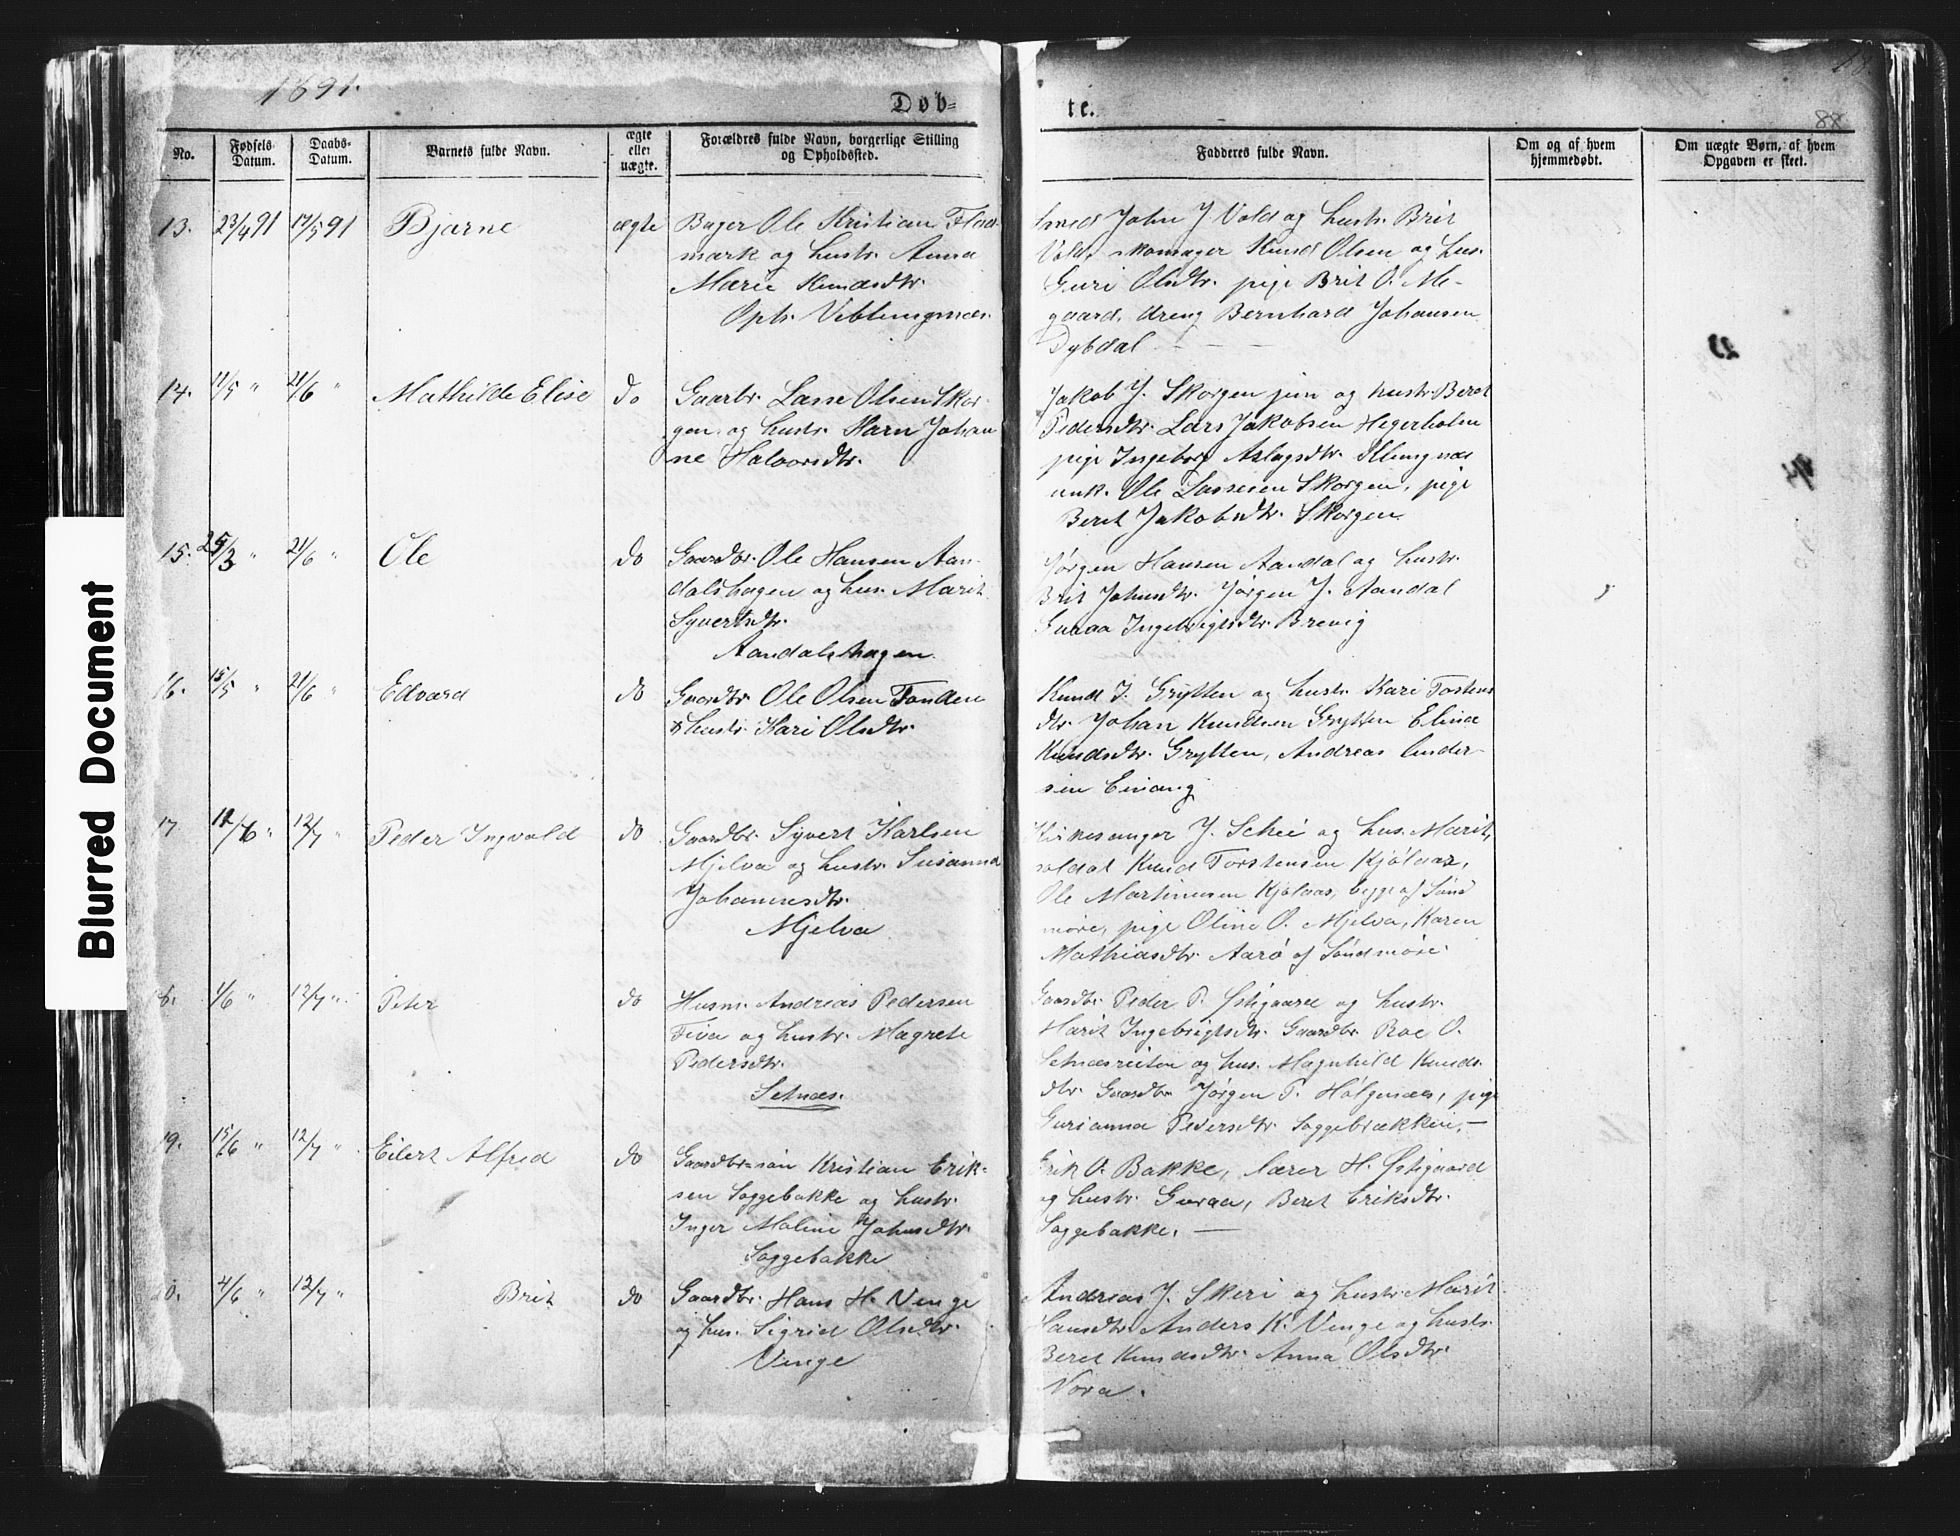 1891.
Døb=
te.
88
Blurred Document
No.
Fødsels-
Datum.
Daabs-
Datum.
Barnets fulde Navn.
ægte
eller
uægte.
Forældres fulde Navn, borgerlige Stilling
og Opholdssted.
Fadderes fulde Navn.
Om og af hvem
hjemmedøbt.
Om uægte Børn, af hvem
Opgaven er skeet.
13. 23/4 91 17/5 91 Bjarne ægte
Bager Ole Kristian Flad-
mark og hustr. Anna
Marie Knudsdtr.
Oph. Veblungsnæs.
Smed John J. Vold og hustr. Brit
Vold, skomager Knud Olsen og hus.
Guri Olsdtr. pige Brit O. Me-
gaard, dreng Bernhard Johansen
Dybdal
14. 11/5 " 21/6 " Mathilde Elise do
Gaarbr. Lasse Olsen Skor-
gen og hustr. Karn Johan
ne Halvorsdtr.
Jakob J. Skorgen jun og hustr. Beret
Pedersdtr. Lars Jakobsen Hegerholm
pige Ingeborg Aslagsdtr. Klungnæs
unk. Ole Lassesen Skorgen, pige
Beret Jakobsdtr. Skorgen
15. 25/3 " 21/6 " Ole do
Gaardbr. Ole Hansen Aan-
dalshagen og hus. Marit
Syvertsdtr.
Aandalshagen.
Jørgen Hansen Aandal og hustr.
Brit Johnsdtr. Jørgen J. Aandal
Guraa Ingebrigtsdtr. Brevig
16. 15/5 " 21/6 " Edvard do
Gaardbr Ole Olsen Tonden
& hustr. Kari Olsdtr.
Knud J. Grytten og hustr. Kari Tostens
dtr. Johan Knudsen Grytten Elina
Knudsdtr. Grytten, Andreas Ander-
sen Einang
17 12/6 " 12/7 " Peder Ingvald do
Gaardbr. Syvert Karlsen
Mjelva og hustr. Susanna
Johannesdtr.
Mjelva
Kirkesanger J. Schei og hus. Marit,
soldat Knud Torstensen Kjølaas,
Ole Martinusen Kjølaas, begge af Sønd
møre, pige Oline O. Mjelva, Karen
Mathiasdtr. Aarø af Søndmøre.
18. 1/6 " 12/7 " Peter do
Husm. Andreas Pedersen
Fiva og hustr. Magrete
Pedersdtr.
Setnæs.
Gaardbr. Peder P. Østigaard og hustr.
Marit Ingebrigtsdtr. Gaardbr. Roe O.
Setnæsreiten og hus. Magnhild Knuds-
dtr. Gaardbr Jørgen P. Hølgenæs, pige
Gurianna Pedersdtr. Soggebrækken. —
19. 15/6 " 12/7 " Eilert Alfred do
Gaardbr.søn Kristian Erik-
sen Soggebakke og hustr.
Inger Moline Johnsdtr.
Soggebakke
Erik O. Bakke, lærer H. Østigaard
og hustr. Guraa, Beret Eriksdtr.
Soggebakke. —
20. 4/6 " 12/7 " Brit do
Gaardbr. Hans H. Venge
og hus. Sigrid Olsdtr.
Venge
Andreas J. Skeri og hustr. Marit
Hansdtr. Anders K. Venge og hustr.
Beret Knudsdtr. Anna Olsdtr.
Vora.